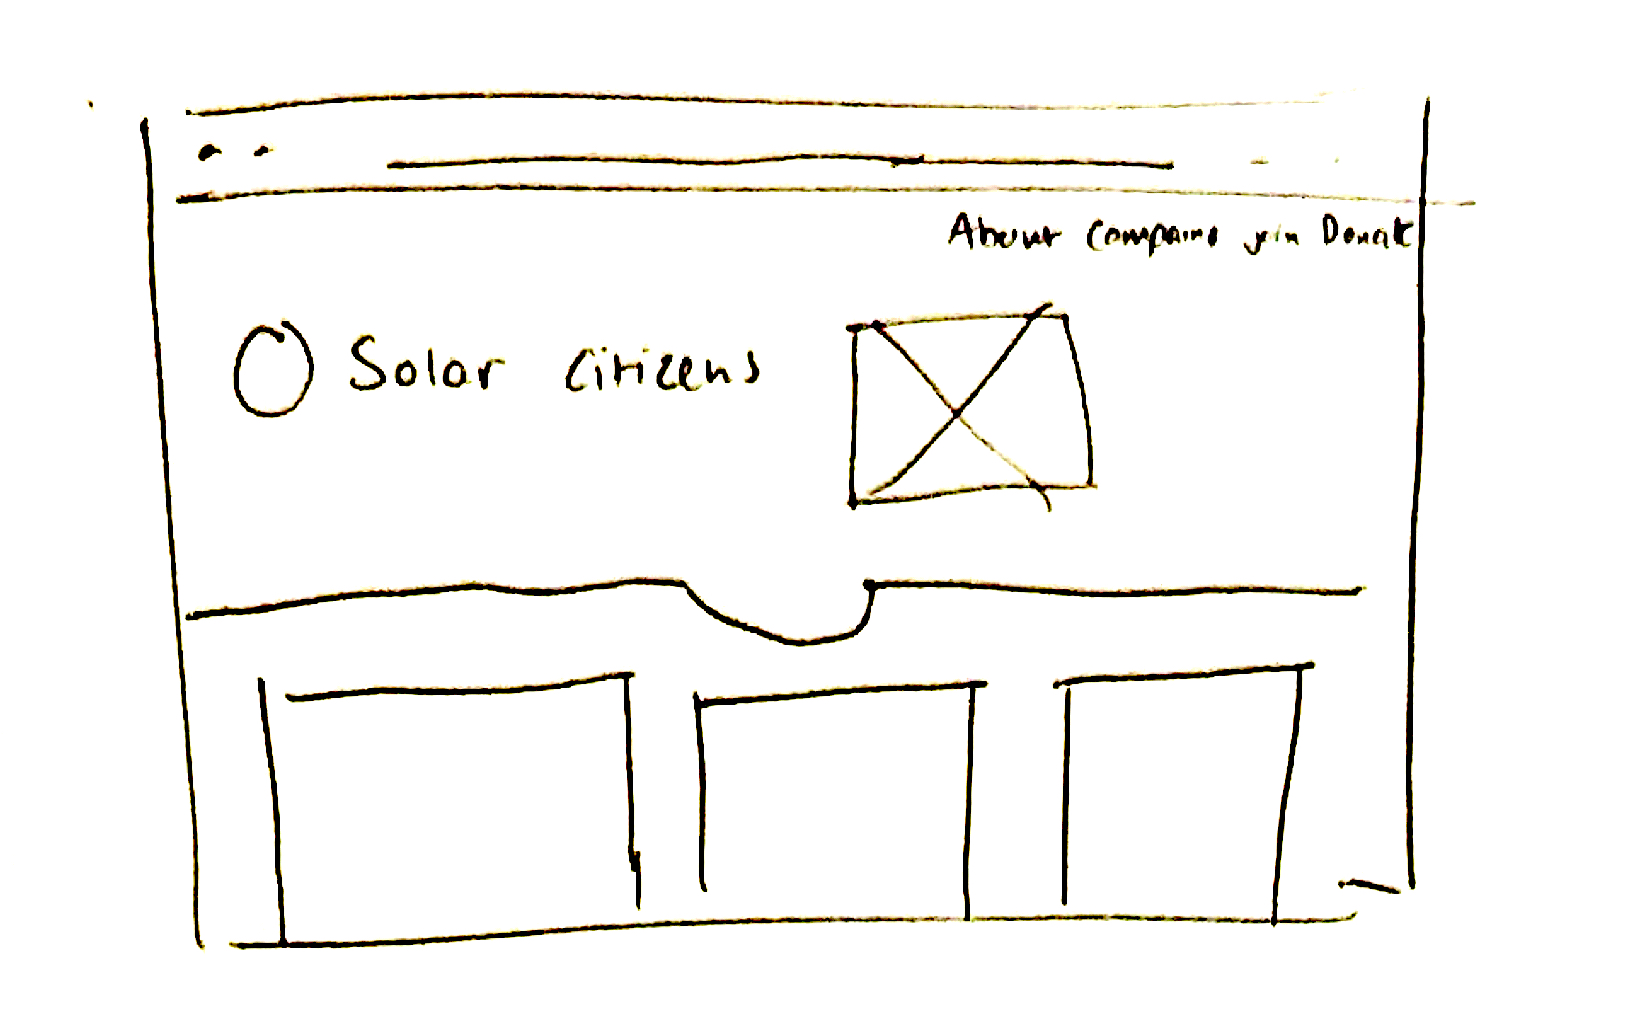 About Campaigns join Donate
Solar Citizens